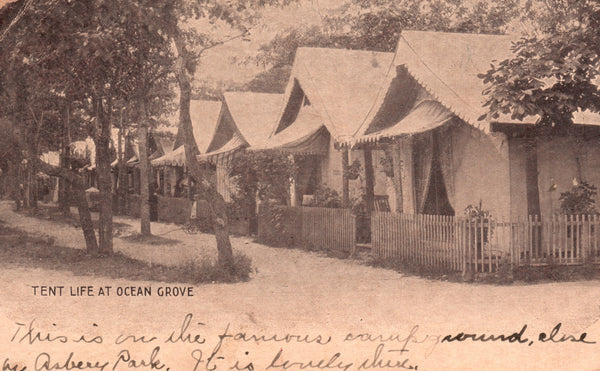 TENT LIFE AT OCEAN GROVE
This is on the famous camp ground, close
by Asbery Park. It is lovely there.